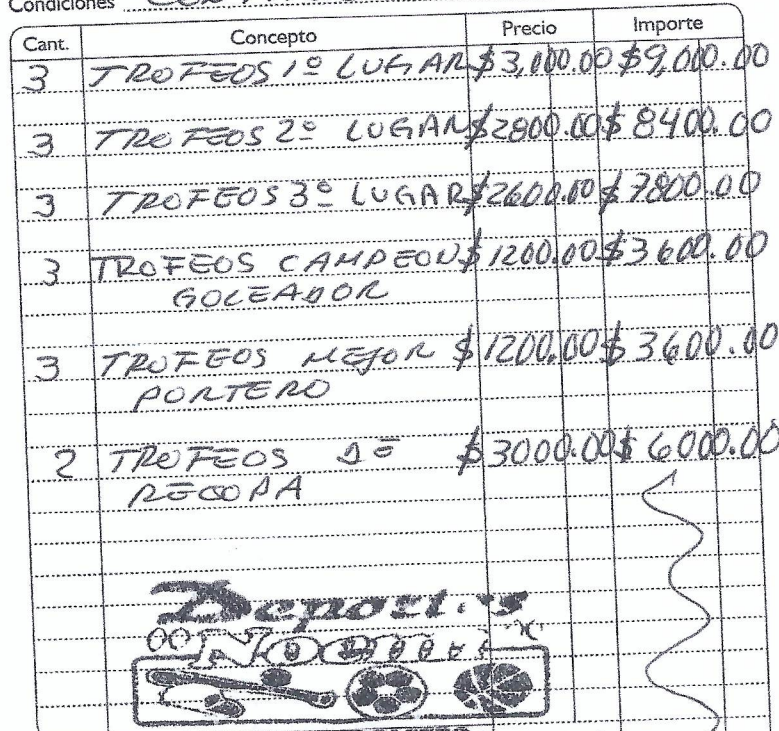 Condiciones
Cant. Concepto Precio Importe
3 TROFEOS 1º LUGAR $3,000.00 $9,000.00
3 TROFEOS 2º LUGAR $2800.00 $8400.00
3 TROFEOS 3º LUGAR $2600.00 $7800.00
3 TROFEOS CAMPEON $1200.00 $3600.00
GOLEADOR
3 TROFEOS MEJOR $1200.00 $3600.00
PORTERO
2 TROFEOS DE $3000.00 $6000.00
RECOPA